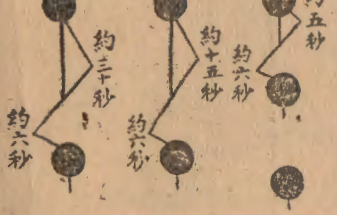 約五秒
約六秒
約十五秒
約六秒
約三十秒
約六秒